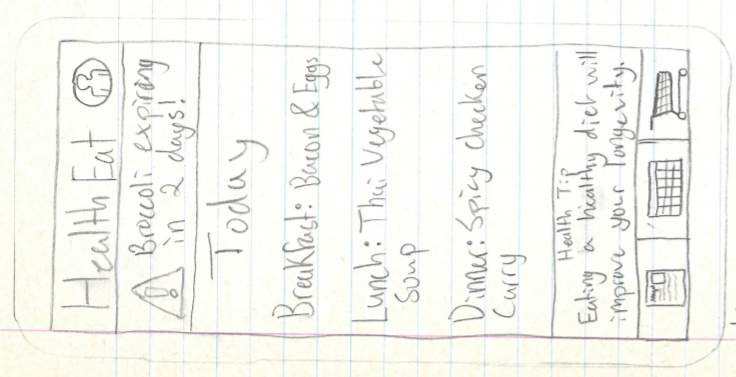 Health Eat
Broccoli expiring
in 2 days!
Today
Breakfast: Bacon & Eggs
Lunch: Thai Vegetable
Soup
Dinner: Spicy checken
Curry
Health Tip
Eating a healthy diet will
improve your longevity.